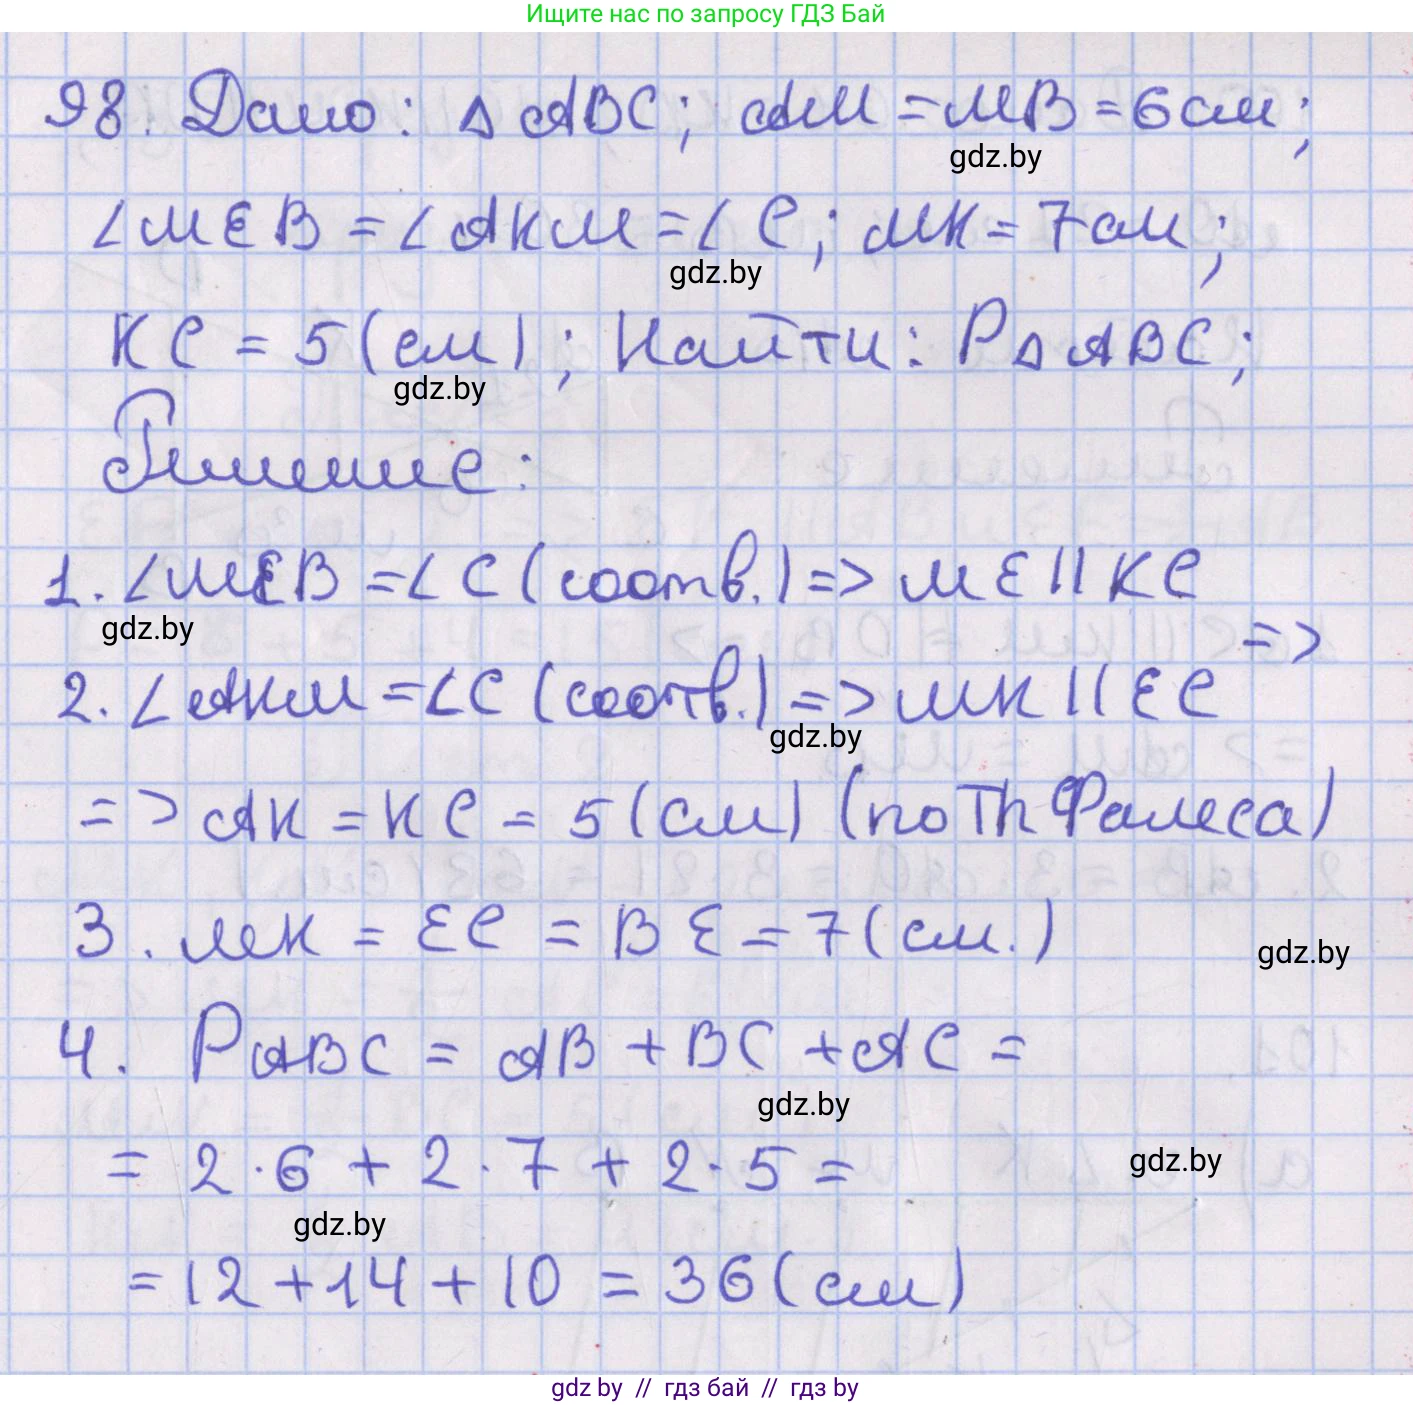 Ищите нас по запросу ГДЗ Бай
98. Дано: △ ABC; AM = MB = 6 см;
gdz.by
∠MEB = ∠AKM = ∠C; MK = 7 см;
gdz.by
KC = 5 (см); Найти: P△ABC;
gdz.by
Решение:
1. ∠MEB = ∠C (соотв.) => ME || KC
gdz.by
=>
2. ∠AKM = ∠C (соотв.) => MK || EC
gdz.by
=> AK = KC = 5 (см) (по Th Фалеса)
3. MK = EC = BE = 7 (см.)
gdz.by
4. PABC = AB + BC + AC =
gdz.by
= 2·6 + 2·7 + 2·5 =
gdz.by
gdz.by
= 12 + 14 + 10 = 36 (см)
gdz by // гдз бай // гдз by